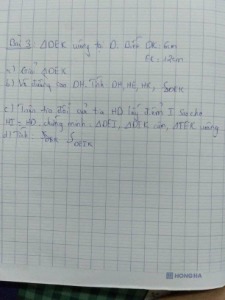 Bài 3 ΔDEK vuông tại D. Biết DK = 6cm
EK = 12cm
a) Giải ΔDEK
b) Vẽ đường cao DH. Tính DH, HE, HK, S DEK
c) Trên tia đối của tia HD lấy điểm I sao cho
HI = HD. chứng minh: ΔDEI, ΔDEK cân, ΔIEK vuông
d) Tính S S DEIK
HONG HA